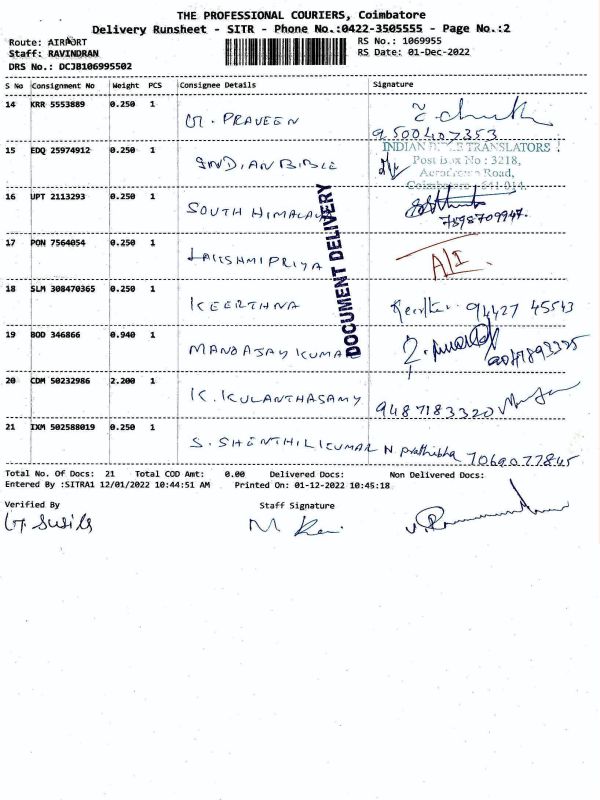 THE PROFESSIONAL COURIERS, Coimbatore
Delivery Runsheet - SITR - Phone No.:0422-3505555 - Page No.:2
Route: AIRPORT
RS No.: 1069955
Staff: RAVINDRAN
RS Date: 01-Dec-2022
DRS No.: DCJB106995502
S No Consignment No Weight PCS Consignee Details Signature
14 KRR 5553889 0.250 1 G. PRAVEEN
9500407353
15 EDQ 25974912 0.250 1 INDIAN BIBLE
INDIAN TRANSLATORS
Post Box No : 3218,
Aerodrome Road,
Coimbatore - 641 014.
16 UPT 2113293 0.250 1 SOUTH HIMALAYA
7598709947.
17 PON 7564054 0.250 1 LAKSHMIPRIYA
A/I.
18 SLM 308470365 0.250 1 KEERTHNA
94427 45543
19 BOD 346866 0.940 1 MANOAJAY KUMAR
20 CDM 50232986 2.200 1 K. KULANTHASAMY
9487183320
21 IXM 502588019 0.250 1 S. SHENTHILKUMAR N Prathibha 7069077845
DOCUMENT DELIVERY
Total No. Of Docs: 21 Total COD Amt: 0.00 Delivered Docs: Non Delivered Docs:
Entered By :SITRA1 12/01/2022 10:44:51 AM Printed On: 01-12-2022 10:45:18
Verified By Staff Signature